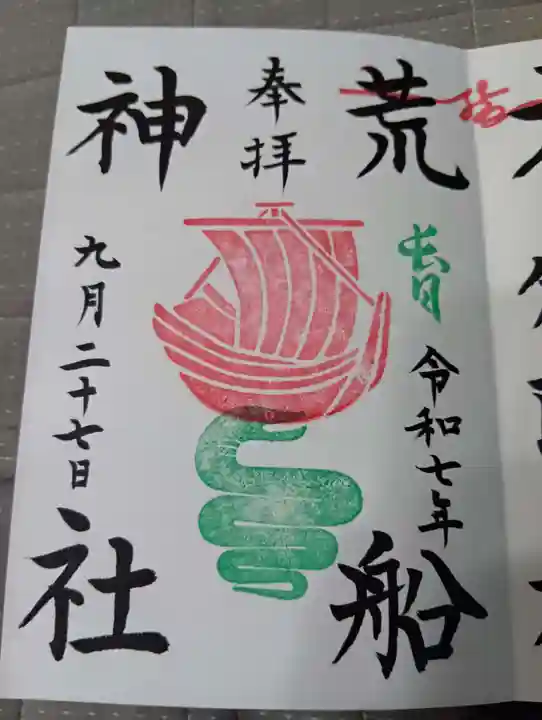 荒船
令和七年
奉拝
神社
九月二十七日